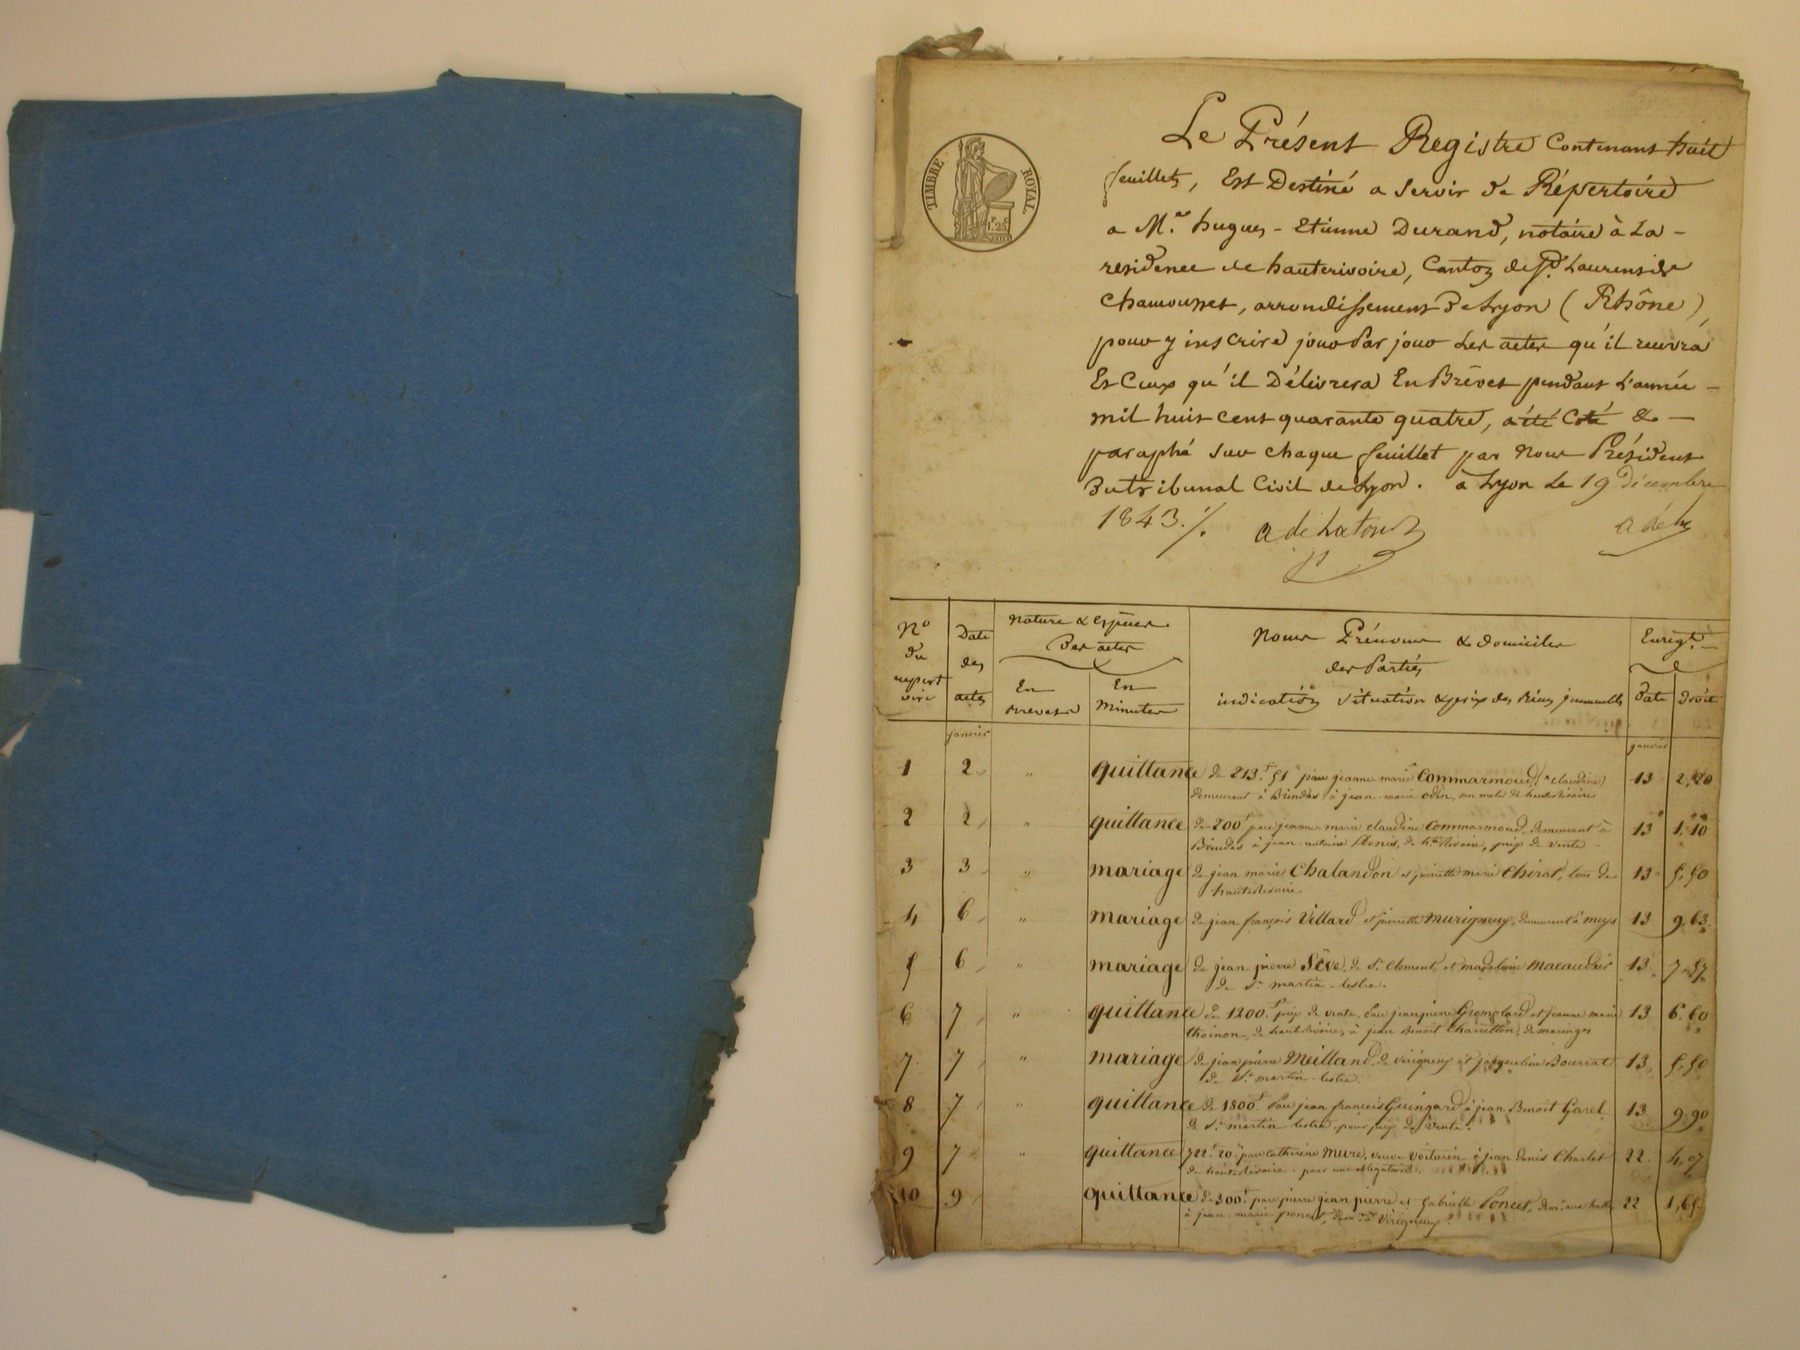 TIMBRE ROYAL
1F.25C
Le Présent Registre Contenant huit
feuillets, Est Destiné a Servir de Répertoire
a Me. hugues-Etienne Durand, notaire à La-
residence de hauterivoire, Canton de St. Laurent de
Chamousset, arrondissement De Lyon (Rhône),
pour y inscrire jour Par jour Les actes qu'il recevra
Et Ceux qu'il Délivrera En Brévet pendant L'année-
mil huit cent quarante quatre, a été Coté &-
paraphé sur chaque feuillet par Nous Président
Du tribunal Civil de Lyon. à Lyon Le 19 décembre
1843./.
N° du repertoire
Date des actes
Nature & Espèces Des actes
En Brevet
En Minutes
Noms Prénoms & domiciles
des Parties
indication Situation & prix des Biens immeubles
Enregt.
Date
Droit
janvier
janvier
1 2 " quittance de 213.f 51 par jeanne marie Commarmond (claudine) 13 2,20
demeurant à Brindas à jean-marie odin, de hauterivoire
2 2 " quittance de 200f par jeanne-marie claudine Commarmond, demeurant à 13 1,10
Brindas à jean-antoine de hte Rivoire, prix de vente-
3 3 " mariage de jean marie Chalandon et pierrette marie Chirat, tous de 13 5,50
hauterivoire
4 6 " mariage de jean françois Villard et pierrette murigneux, demeurant à meys 13 9,63
5 6 " mariage de jean pierre Sève, de St. Clement, et madelaine 13 7,57
de St. martin-lestra.
6 7 " quittance de 1200.f prix de vente, Par jean pierre et jeanne marie 13 6,60
thoinon, de hauterivoire, à jean Benoit de maringes
7 7 " mariage de jean pierre Meilland, de Virigneux et jacqueline Bourrat 13 5,50
de St. martin-lestra
8 7 " quittance de 1800f. Par jean françois Guingard à jean Benoit Garel 13 9,90
de St. martin lestra, pour prix de vente.
9 7 quittance 722f. 20 par Catherine Mure, veuve Voiturin à jean denis Charlet 22 4,07
de hauterivoire, pour une obligation
10 9 quittance de 300f. par pierre, jean pierre et Gabrielle Poncet, 22 1,65
à jean-marie poncet, Virigneux